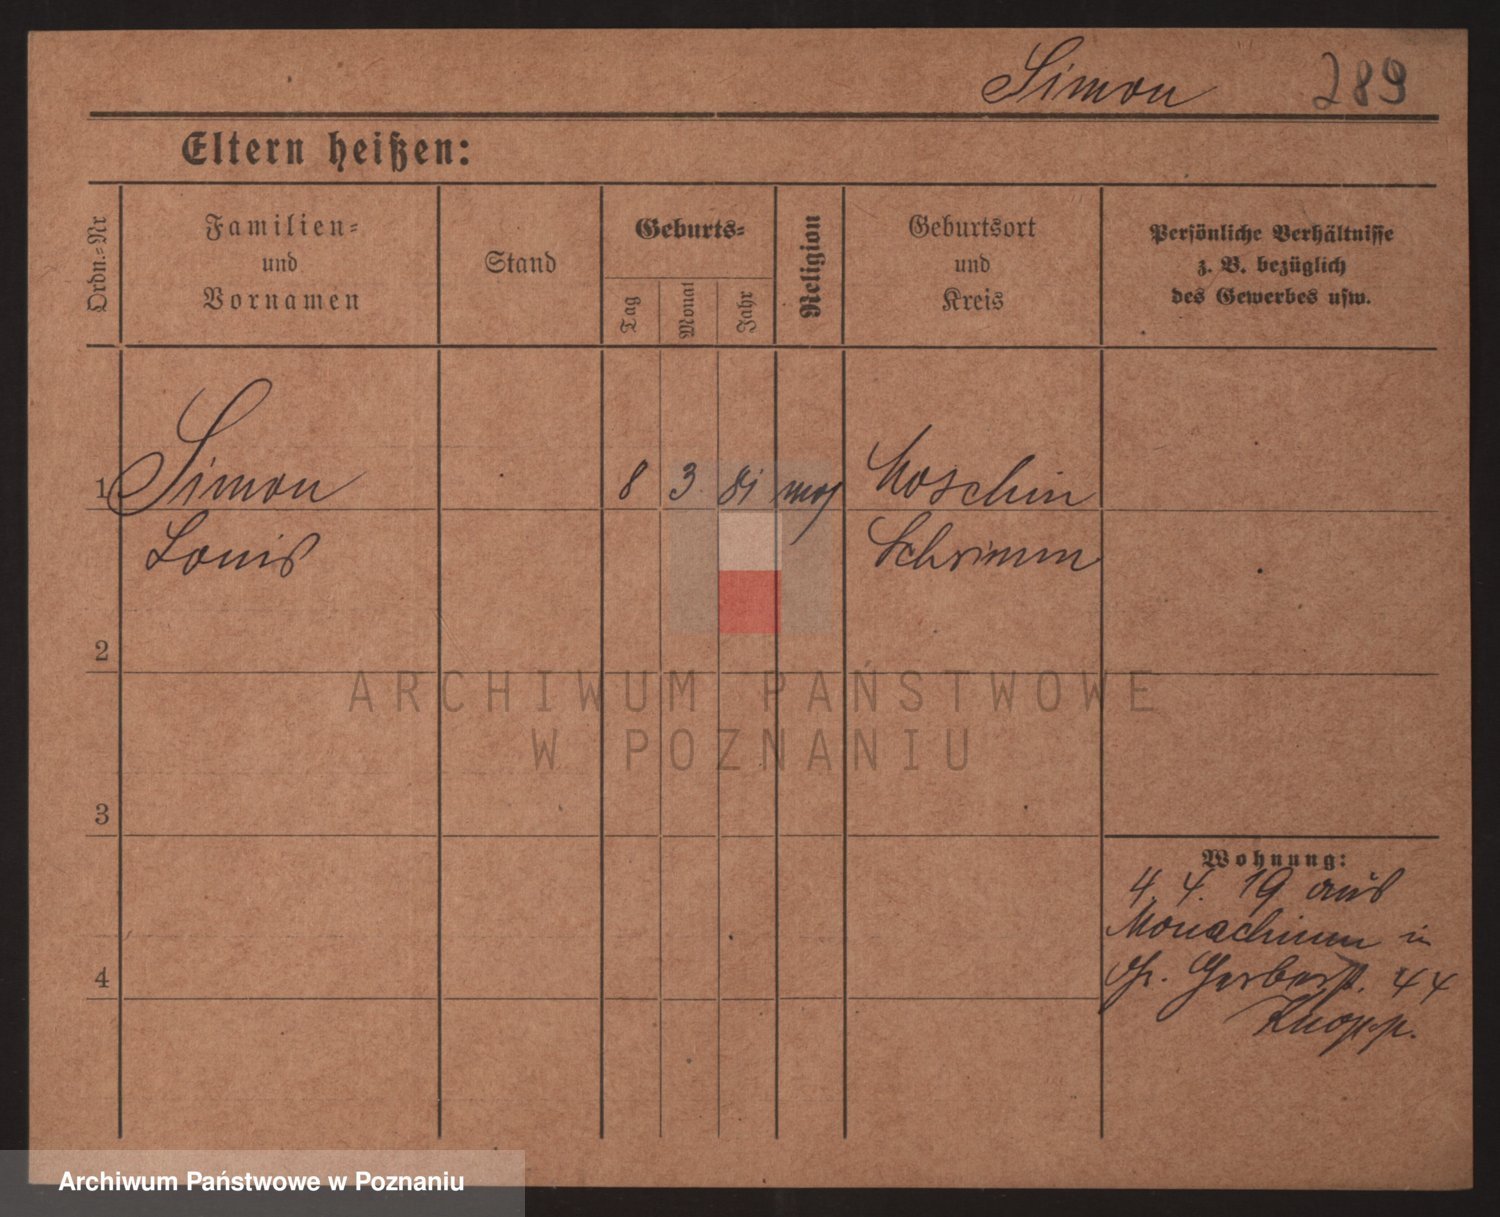 Simon 289
Eltern heißen:
Ordn.=Nr
Familien=
und
Vornamen
Stand
Geburts=
Tag
Monat
Jahr
Religion
Geburtsort
und
Kreis
Persönliche Verhältnisse
z. B. bezüglich
des Gewerbes usw.
1 Simon 8 3. 81 mos Moschin
Louis Schrimm
2
ARCHIWUM PAŃSTWOWE
W POZNANIU
3
Wohnung:
4. 4. 19 aus
in
4
Gr. Gerberst. 44
Knopp.
Archiwum Państwowe w Poznaniu